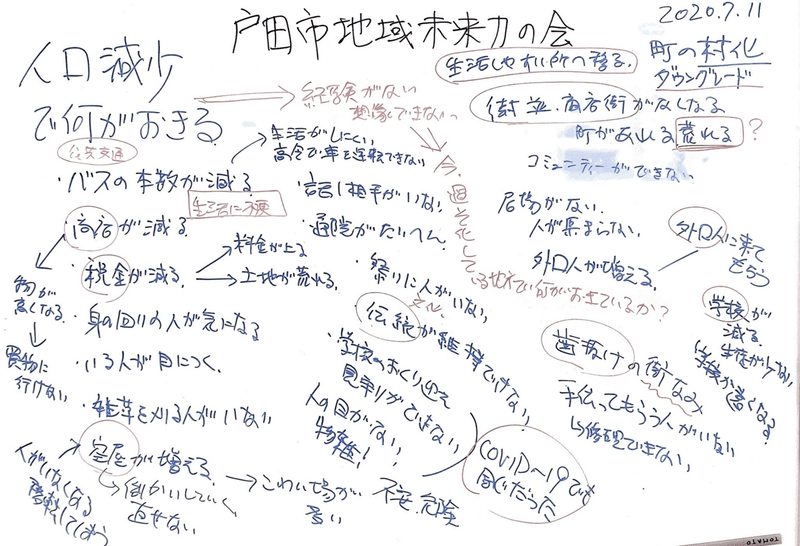 戸田市地域未来力の会
2020.7.11
人口減少
で何がおきる
経験がない
想像できない
生活しやすい所へ移る.
町の村化
ダウングレード
街並.商店街がなくなる
町があれる 荒れる ?
コミュニティーができない
公共交通
・バスの本数が減る
生活しにくい
高令で車を運転できない
生活に直
・商店が減る.
・税金が減る.
料金が上る
土地が荒れる.
物が
高くなる
買物に
行けない
・身の回りの人が気になる
・いる人が目につく.
・雑草を刈る人がいない
・空屋が増える.
人がいなくなる
倒かいしていく
直せない
こわい場が
多い
不安.危険
・話し相手がいない
・通院がたいへん.
・祭りに人がいない
文化
伝統が維持できない
・学校のおくり迎え
見守りができない
人の目がない
物騒!
COVID-19でも
同じだった
今.過疎化している地方で何がおきているか?
居場がない.
人が集まらない.
外国人が増える.
外国人に来て
もらう
学校が
減る.
生徒が少ない
学校が遠くなる?
歯抜けの街なみ
手伝ってもらう人がいない
修理できない
TOMATO